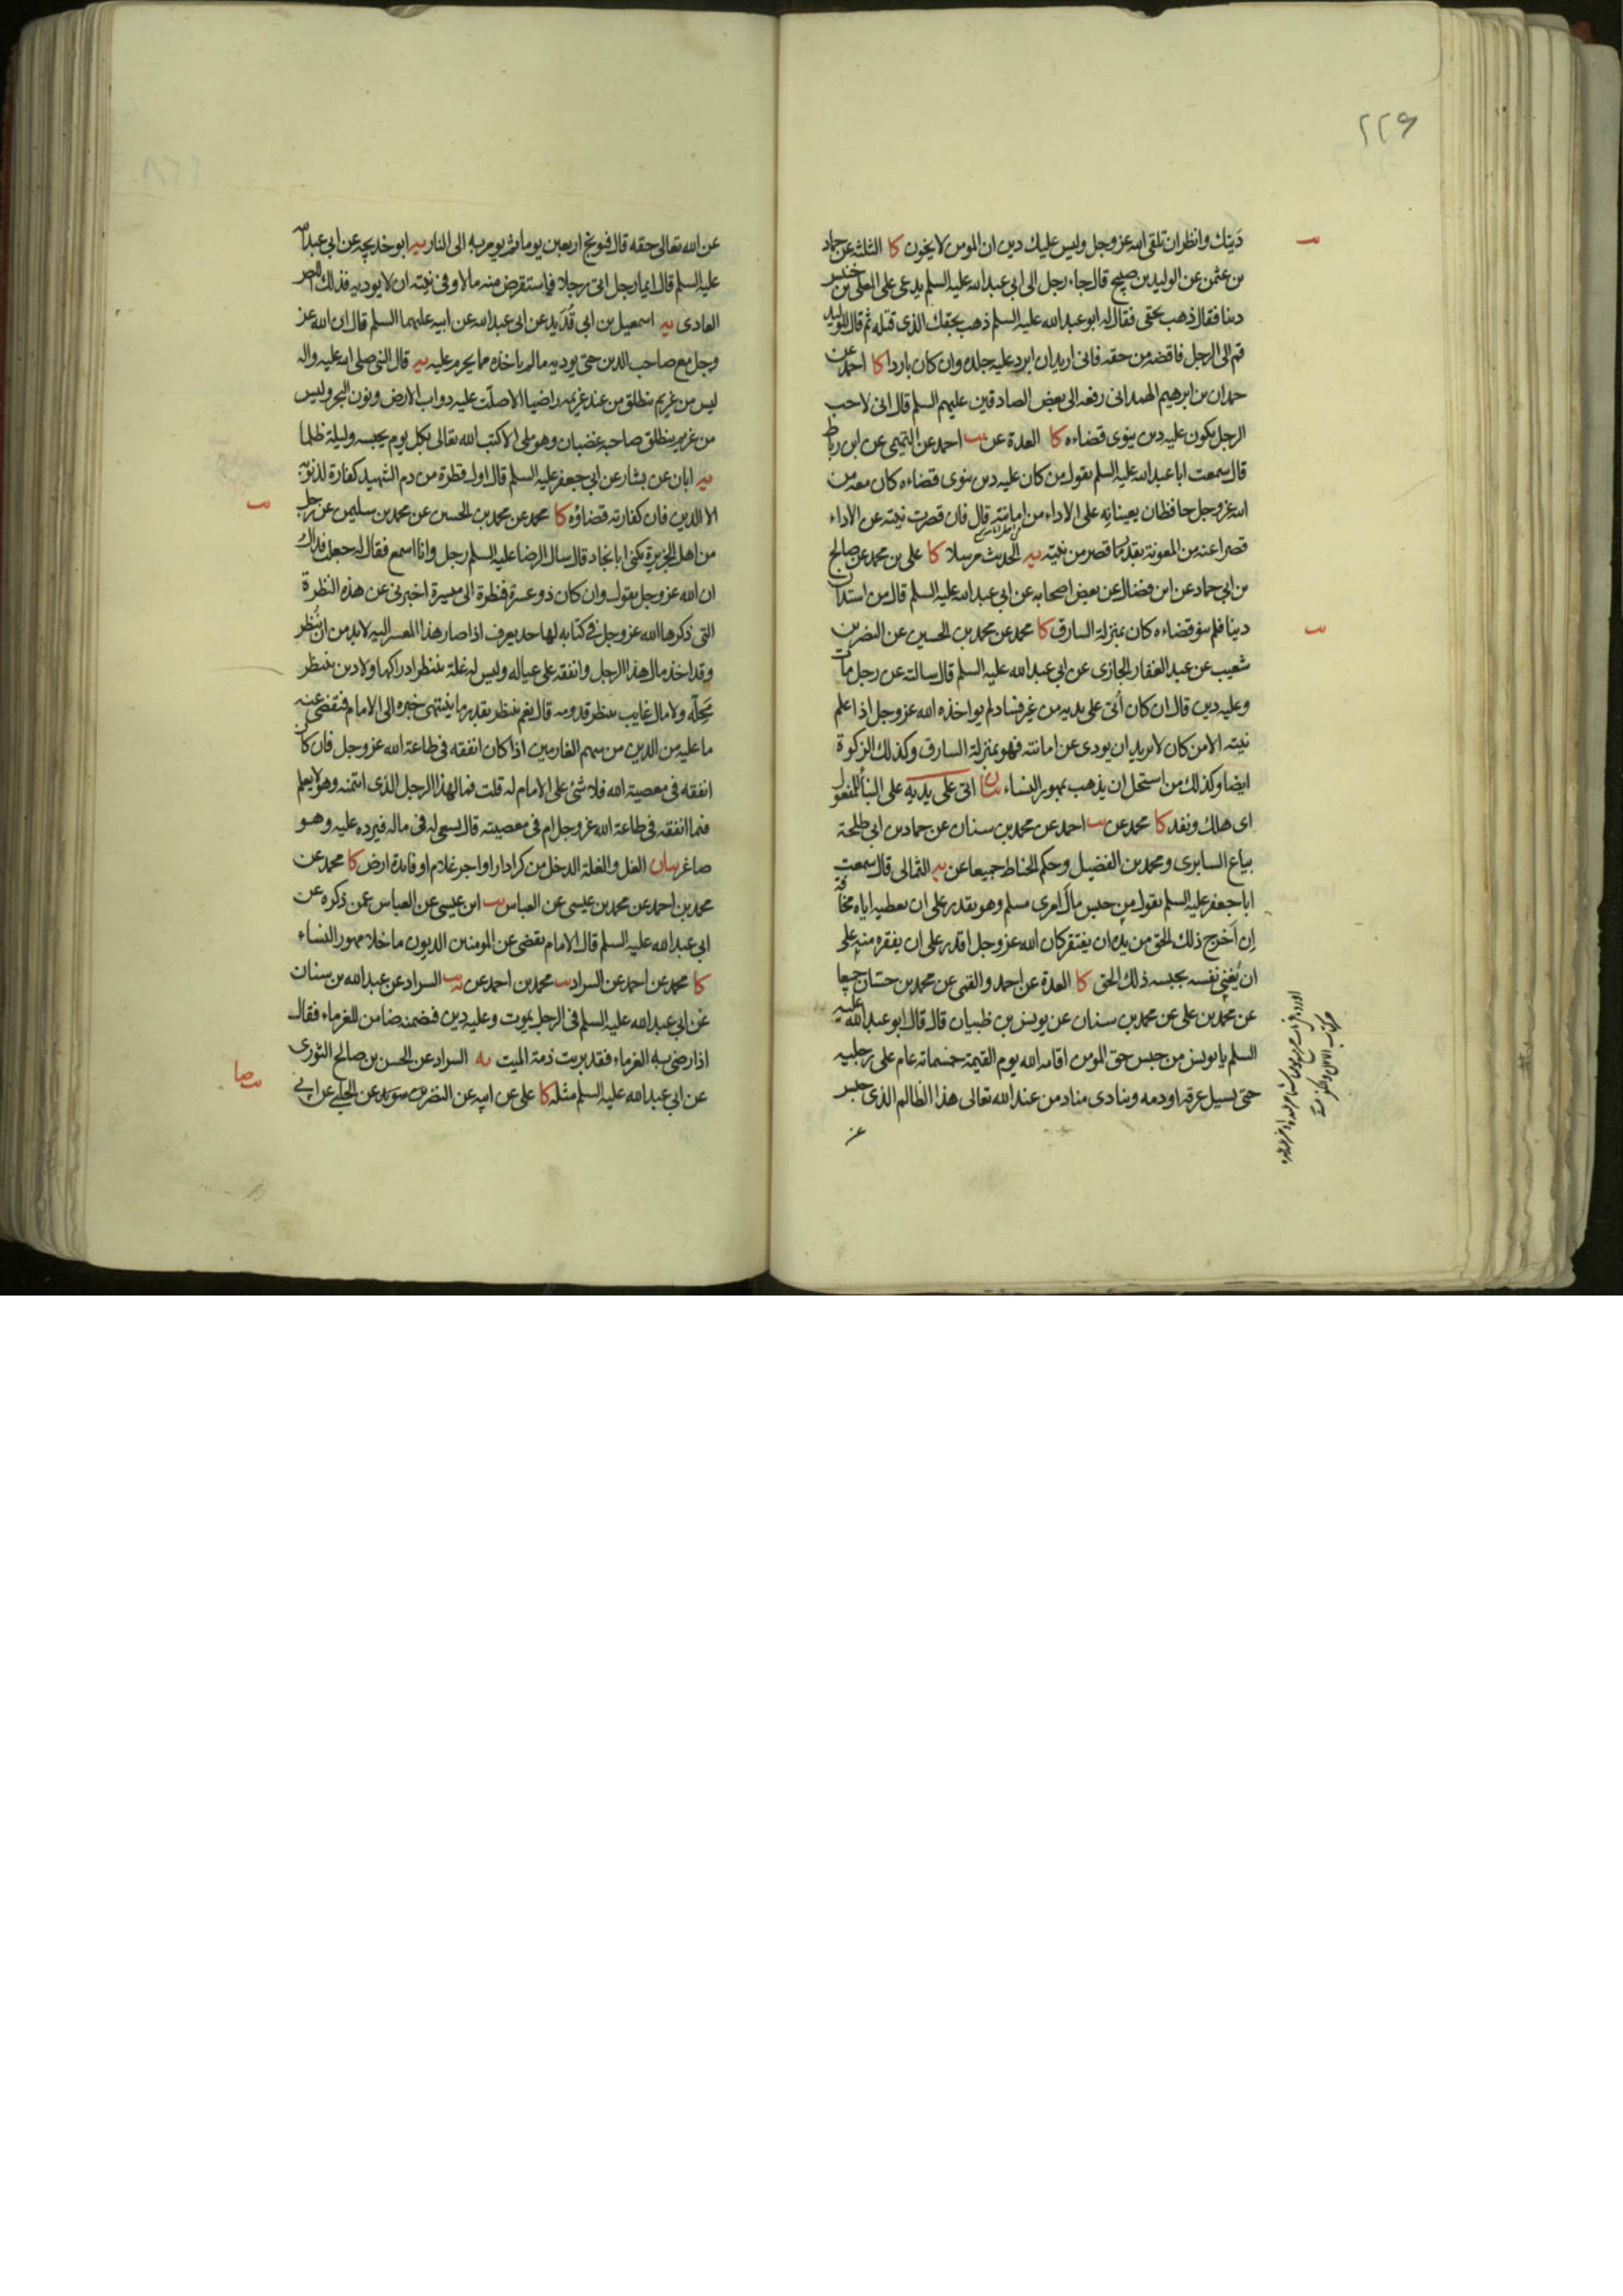 ٢٢٦
دينك وانظر ان تلقى الله عز وجل وليس عليك دين ان المومن لا يخون كا الثلثة عن حماد
بن عثمن عن الوليد بن صبيح قال جاء رجل الى ابى عبد الله عليه السلم يدعى على المعلى بن خنيس
دينا فقال ذهب بحقى فقال له ابو عبد الله عليه السلم ذهب بحقك الذى قتله ثم قال للوليد
قم الى الرجل فاقضه من حقه فانى اريد ان ابرد عليه جلده وان كان باردا كا احمد عن
حمدان بن ابرهيم الهمدانى رفعه الى بعض الصادقين عليهم السلم قال انى لاحب
الرجل يكون عليه دين ينوى قضاءه كا العدة عن يب احمد عن التميمى عن ابن رباط
قال سمعت ابا عبد الله عليه السلم يقول من كان عليه دين ينوى قضاءه كان معه من
الله عز وجل حافظان يعينانه على الاداء من امانته قال فان قصرت نيته عن الاداء
قصرا عنه من المعونة بقدر ما قصر من نيته يه الحديث مرسلا كا على بن محمد عن صالح
بن ابى حماد عن ابن فضال عن بعض اصحابه عن ابى عبد الله عليه السلم قال من استدان
دينا فلم ينو قضاءه كان بمنزلة السارق كا محمد عن محمد بن الحسين عن النضر بن
شعيب عن عبد الغفار الجازى عن ابى عبد الله عليه السلم قال سالته عن رجل مات
وعليه دين قال ان كان اُتى على يديه من غير فساد لم يواخذه الله عز وجل اذا علم
نيته الا من كان لا يريد ان يودى عن امانته فهو بمنزلة السارق وكذلك الزكوة
ايضا وكذلك من استحل ان يذهب بمهور النساء بيان اتى على يديه على البناء للمفعول
اى هلك ونفد كا محمد عن يب احمد عن محمد بن سنان عن حماد بن ابى طلحة
بياع السابرى ومحمد بن الفضيل وحكم الحناط جميعا عن يه الثمالى قال سمعت
ابا جعفر عليه السلم يقول من حبس مال امرى مسلم وهو يقدر على ان يعطيه اياه مخافة
اِن اَخرج ذلك الحق من يده ان يفتقر كان الله عز وجل اقدر على ان يفقره منه على
ان يُغنى نفسه بحبسه ذلك الحق كا العدة عن احمد والقمى عن محمد بن حسّان جميعا
عن محمد بن على عن محمد بن سنان عن يونس بن ظبيان قال قال ابو عبد الله عليه
السلم يا يونس من حبس حق المومن اقامه الله يوم القيمة خمسماته عام على رجليه
حتى يسيل عرقه او دمه وينادى مناد من عند الله تعالى هذا الظالم الذى حبس
عن
عن الله تعالى حقه قال فيوبخ اربعين يوما ثم يومر به الى النار يه ابو خديجه عن ابى عبد الله
عليه السلم قال ايما رجل اتى رجلا فاستقرض منه مالا وفى نيته ان لا يوديه فذلك اللص
العادى يه اسمعيل بن ابى فُدَيد عن ابى عبد الله عن ابيه عليهما السلم قال ان الله عز
وجل مع صاحب الدين حتى يوديه مالم ياخذه مما يحرم عليه يه قال النبى صلى الله عليه واله
ليس من غريم ينطلق من عند غريمه راضيا الا صلّت عليه دواب الارض ونون البحر وليس
من غريم ينطلق صاحبه غضبان وهو ملى الا كتب الله تعالى بكل يوم يحبسه وليلة ظلما
يه ابان عن بشار عن ابى جعفر عليه السلم قال اول قطرة من دم الشهيد كفارة لذنوبه
الا الدين فان كفارته قضاؤه كا محمد عن محمد بن الحسين عن محمد بن سليمن عن رجل
من اهل الجزيرة يكنى ابا نجاد قال سال الرضا عليه السلم رجل وانا اسمع فقال له جعلت فداك
ان الله عز وجل يقول وان كان ذو عسرة فنظرة الى ميسرة اخبرنى عن هذه النظرة
التى ذكرها الله عز وجل فى كتابه لها حد يعرف اذا صار هذا المعسر اليه لا بد من ان يُنظر
وقد اخذ مال هذا الرجل وانفقه على عياله وليس له غلة ينتظر ادراكها ولا دين ينتظر
مَحِلّه ولا مال غايب ينتظر قدومه قال نعم ينتظر بقدر ما ينتهى خبره الى الامام فيقضى عنه
ما عليه من الدين من سهم الغارمين اذا كان انفقه فى طاعة الله عز وجل فان كان
انفقه فى معصية الله فلا شئ على الامام له قلت فما لهذا الرجل الذى ائتمنه وهو لا يعلم
فيما انفقه فى طاعة الله عز وجل ام فى معصيته قال يسعى له فى ماله فيرده عليه وهو
صاغر بيان الغل والغلة الدخل من كرا دار او اجر غلام او فايدة ارض كا محمد عن
محمد بن احمد عن محمد بن عيسى عن العباس يب ابن عيسى عن العباس عمن ذكره عن
ابى عبد الله عليه السلم قال الامام يقضى عن المومنين الديون ما خلا مهور النساء
كا محمد عن احمد عن السراد يب محمد بن احمد عن يب السراد عن عبد الله بن سنان
عن ابى عبد الله عليه السلم فى الرجل يموت وعليه دين فضمنه ضامن للغرماء فقال
اذا رضى به الغرماء فقد بريت ذمة الميت يه السراد عن الحسن بن صالح الثورى
عن ابى عبد الله عليه السلم مثله كا على عن ابيه عن النضر بن سويد عن الحلبى عن ابى